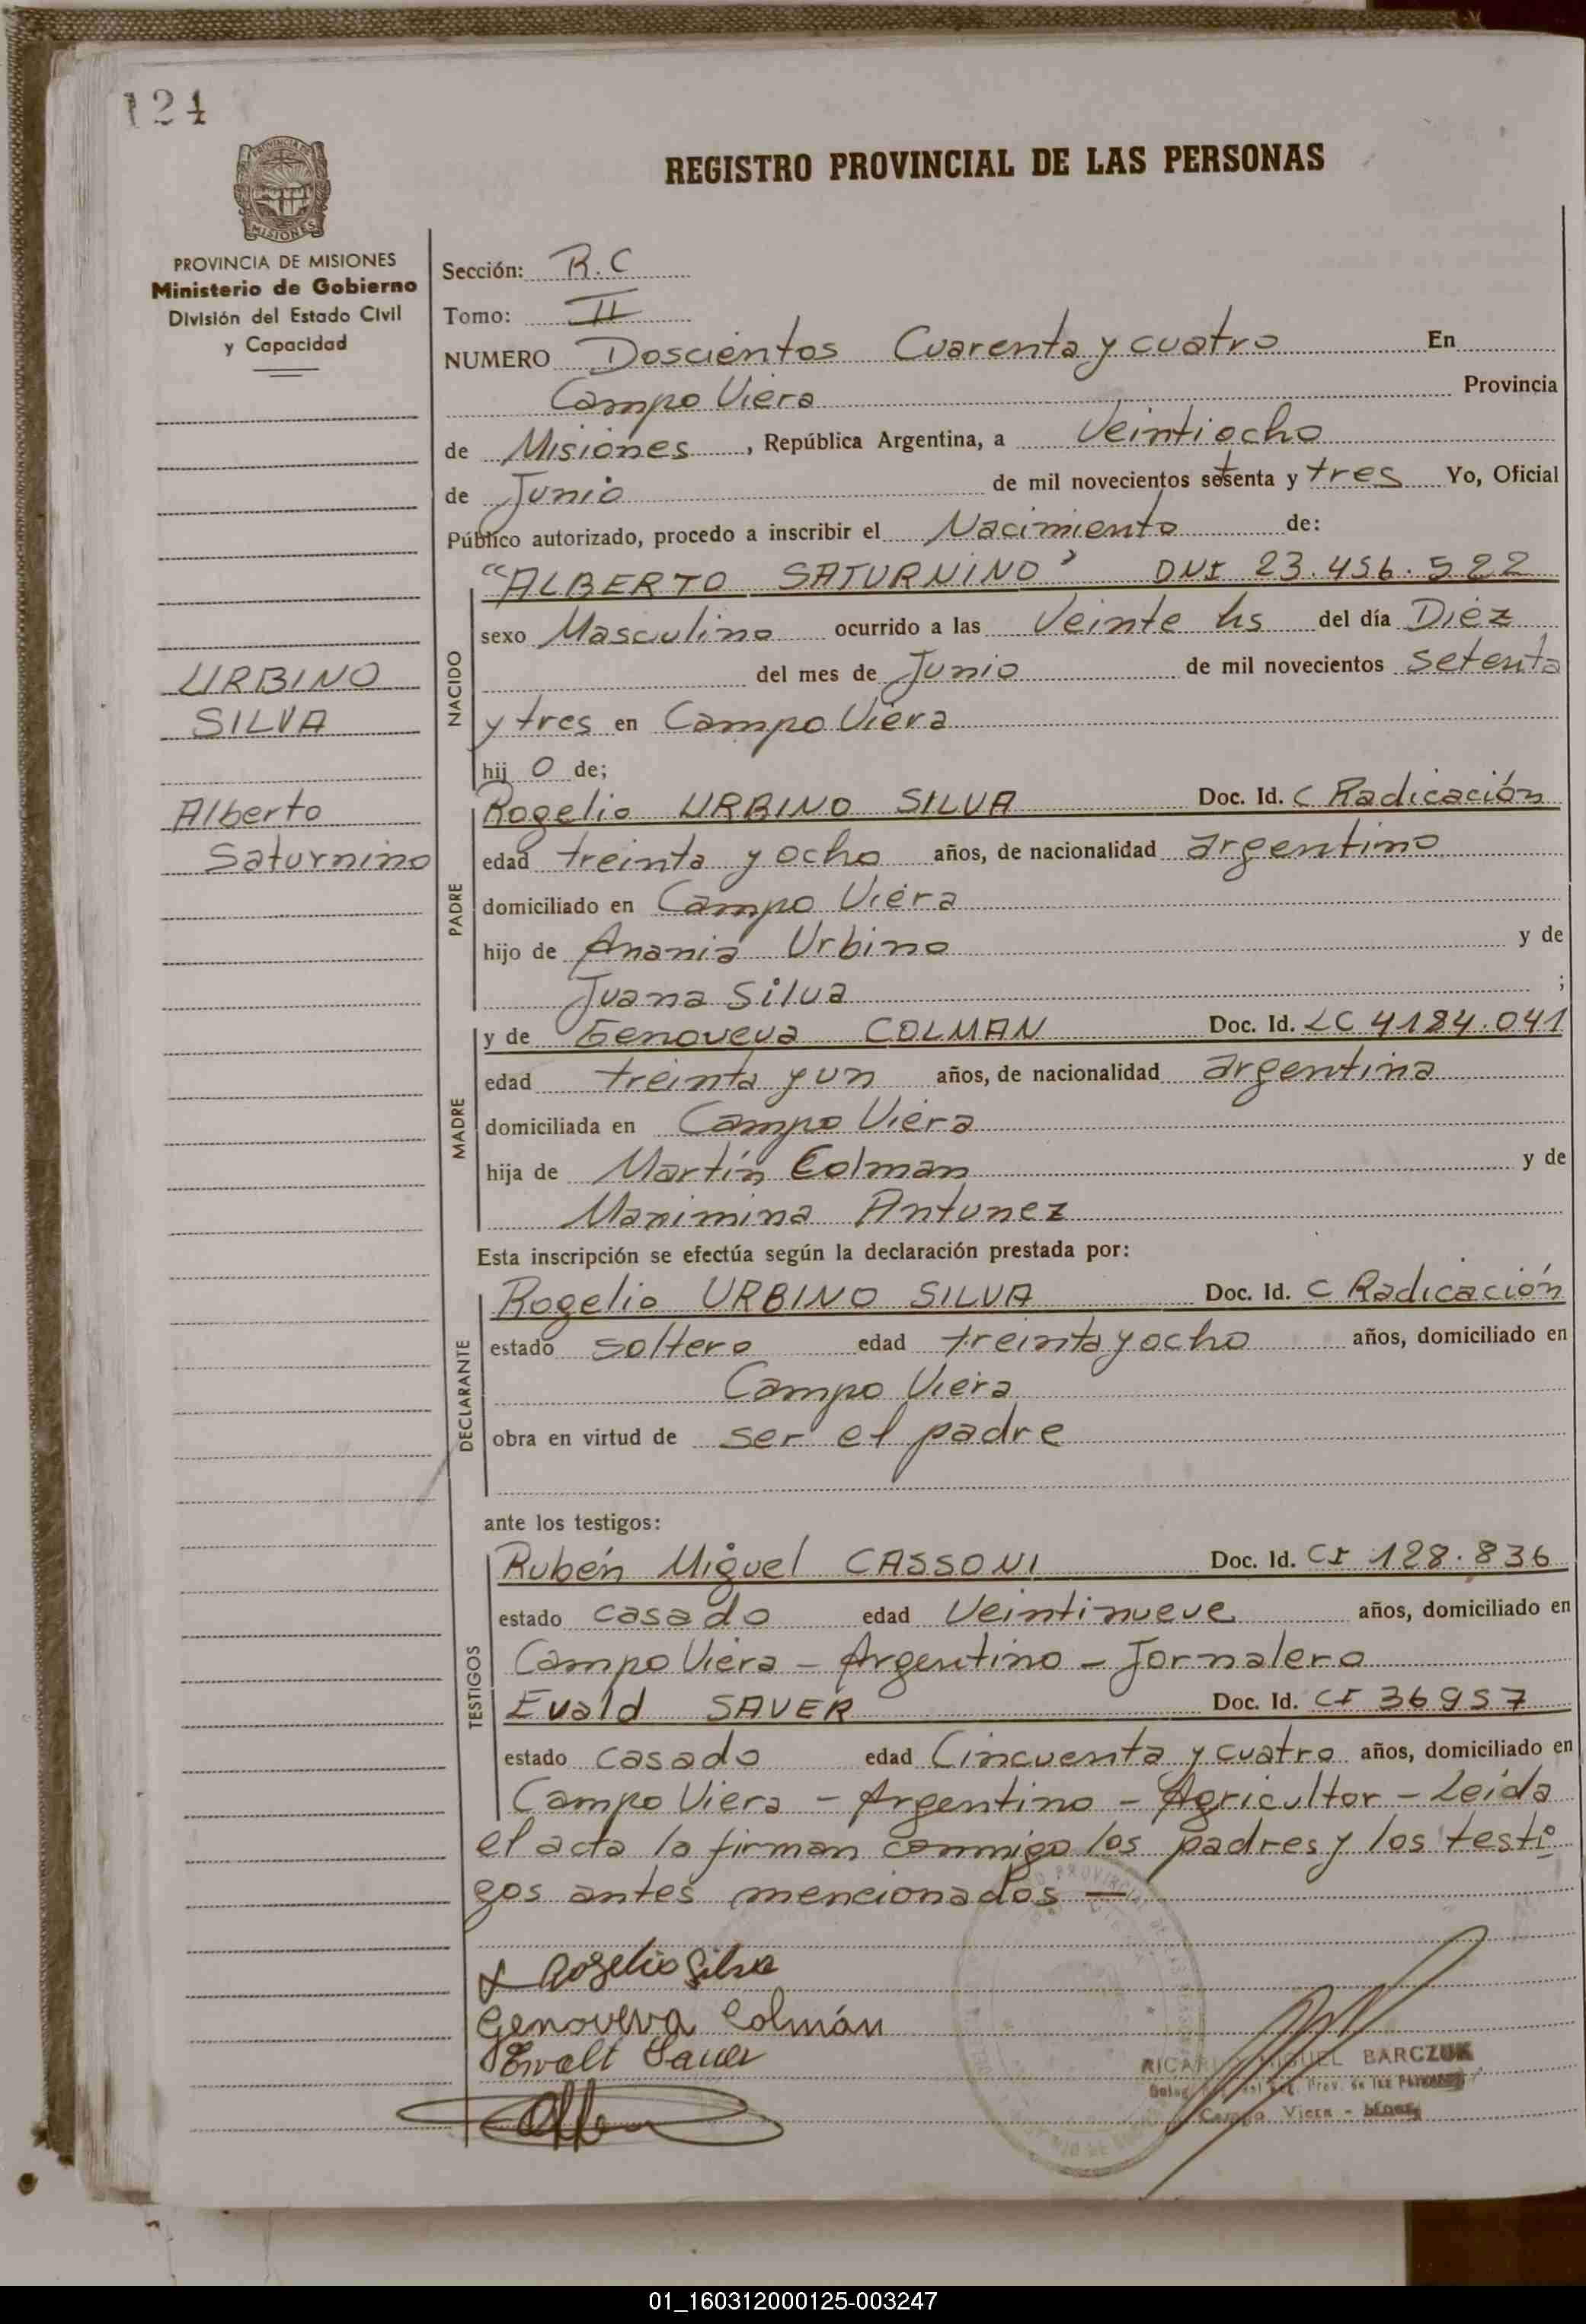 124
REGISTRO PROVINCIAL DE LAS PERSONAS
MISIONES
PROVINCIA DE MISIONES
Ministerio de Gobierno
División del Estado Civil
y Capacidad
URBINO
SILVA
Alberto
Saturnino
Sección: R.C
Tomo: II
NUMERO Doscientos Cuarenta y cuatro En
Campo Viera Provincia
de Misiones, República Argentina, a Veintiocho
de Junio de mil novecientos setenta y tres Yo, Oficial
Público autorizado, procedo a inscribir el Nacimiento de:
"ALBERTO SATURNINO" DNI 23.456.522
NACIDO
sexo Masculino ocurrido a las Veinte hs del día Diez
del mes de Junio de mil novecientos setenta
y tres en Campo Viera
hij o de;
PADRE
Rogelio URBINO SILVA Doc. Id. C Radicación
edad treinta y ocho años, de nacionalidad argentino
domiciliado en Campo Viera
hijo de Anania Urbino y de
Juana Silva ;
MADRE
y de Genoveva COLMAN Doc. Id. LC 4184.041
edad treinta y un años, de nacionalidad argentina
domiciliada en Campo Viera
hija de Martín Colman y de
Maximina Antunez
Esta inscripción se efectúa según la declaración prestada por:
DECLARANTE
Rogelio URBINO SILVA Doc. Id. C Radicación
estado soltero edad treinta y ocho años, domiciliado en
Campo Viera
obra en virtud de ser el padre
ante los testigos:
TESTIGOS
Rubén Miguel CASSONI Doc. Id. CI 128.836
estado casado edad Veintinueve años, domiciliado en
Campo Viera - Argentino - Jornalero
Evald SAUER Doc. Id. CI 36957
estado casado edad Cincuenta y cuatro años, domiciliado en
Campo Viera - Argentino - Agricultor - Leída
el acta la firman conmigo los padres y los testi
gos antes mencionados —
x Rogelio Silva
Genoveva Colmán
Ewalt Sauer
RICARDO MIGUEL BARCZUK
Campo Viera - Mnes.
01_160312000125-003247